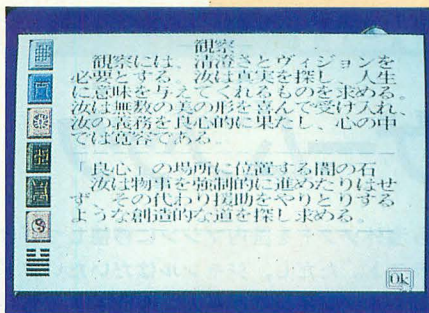 観察
観察には、清澄さとヴィジョンを
必要とする。汝は真実を探し、人生
に意味を与えてくれるものを求める。
汝は無数の美の形を喜んで受け入れ、
汝の義務を良心的に果たし、心の中
では寛容である。
「良心」の場所に位置する闇の石
汝は物事を強制的に進めたりはせ
ず、その代わり援助をやりとりする
ような創造的な道を探し求める。
Ok